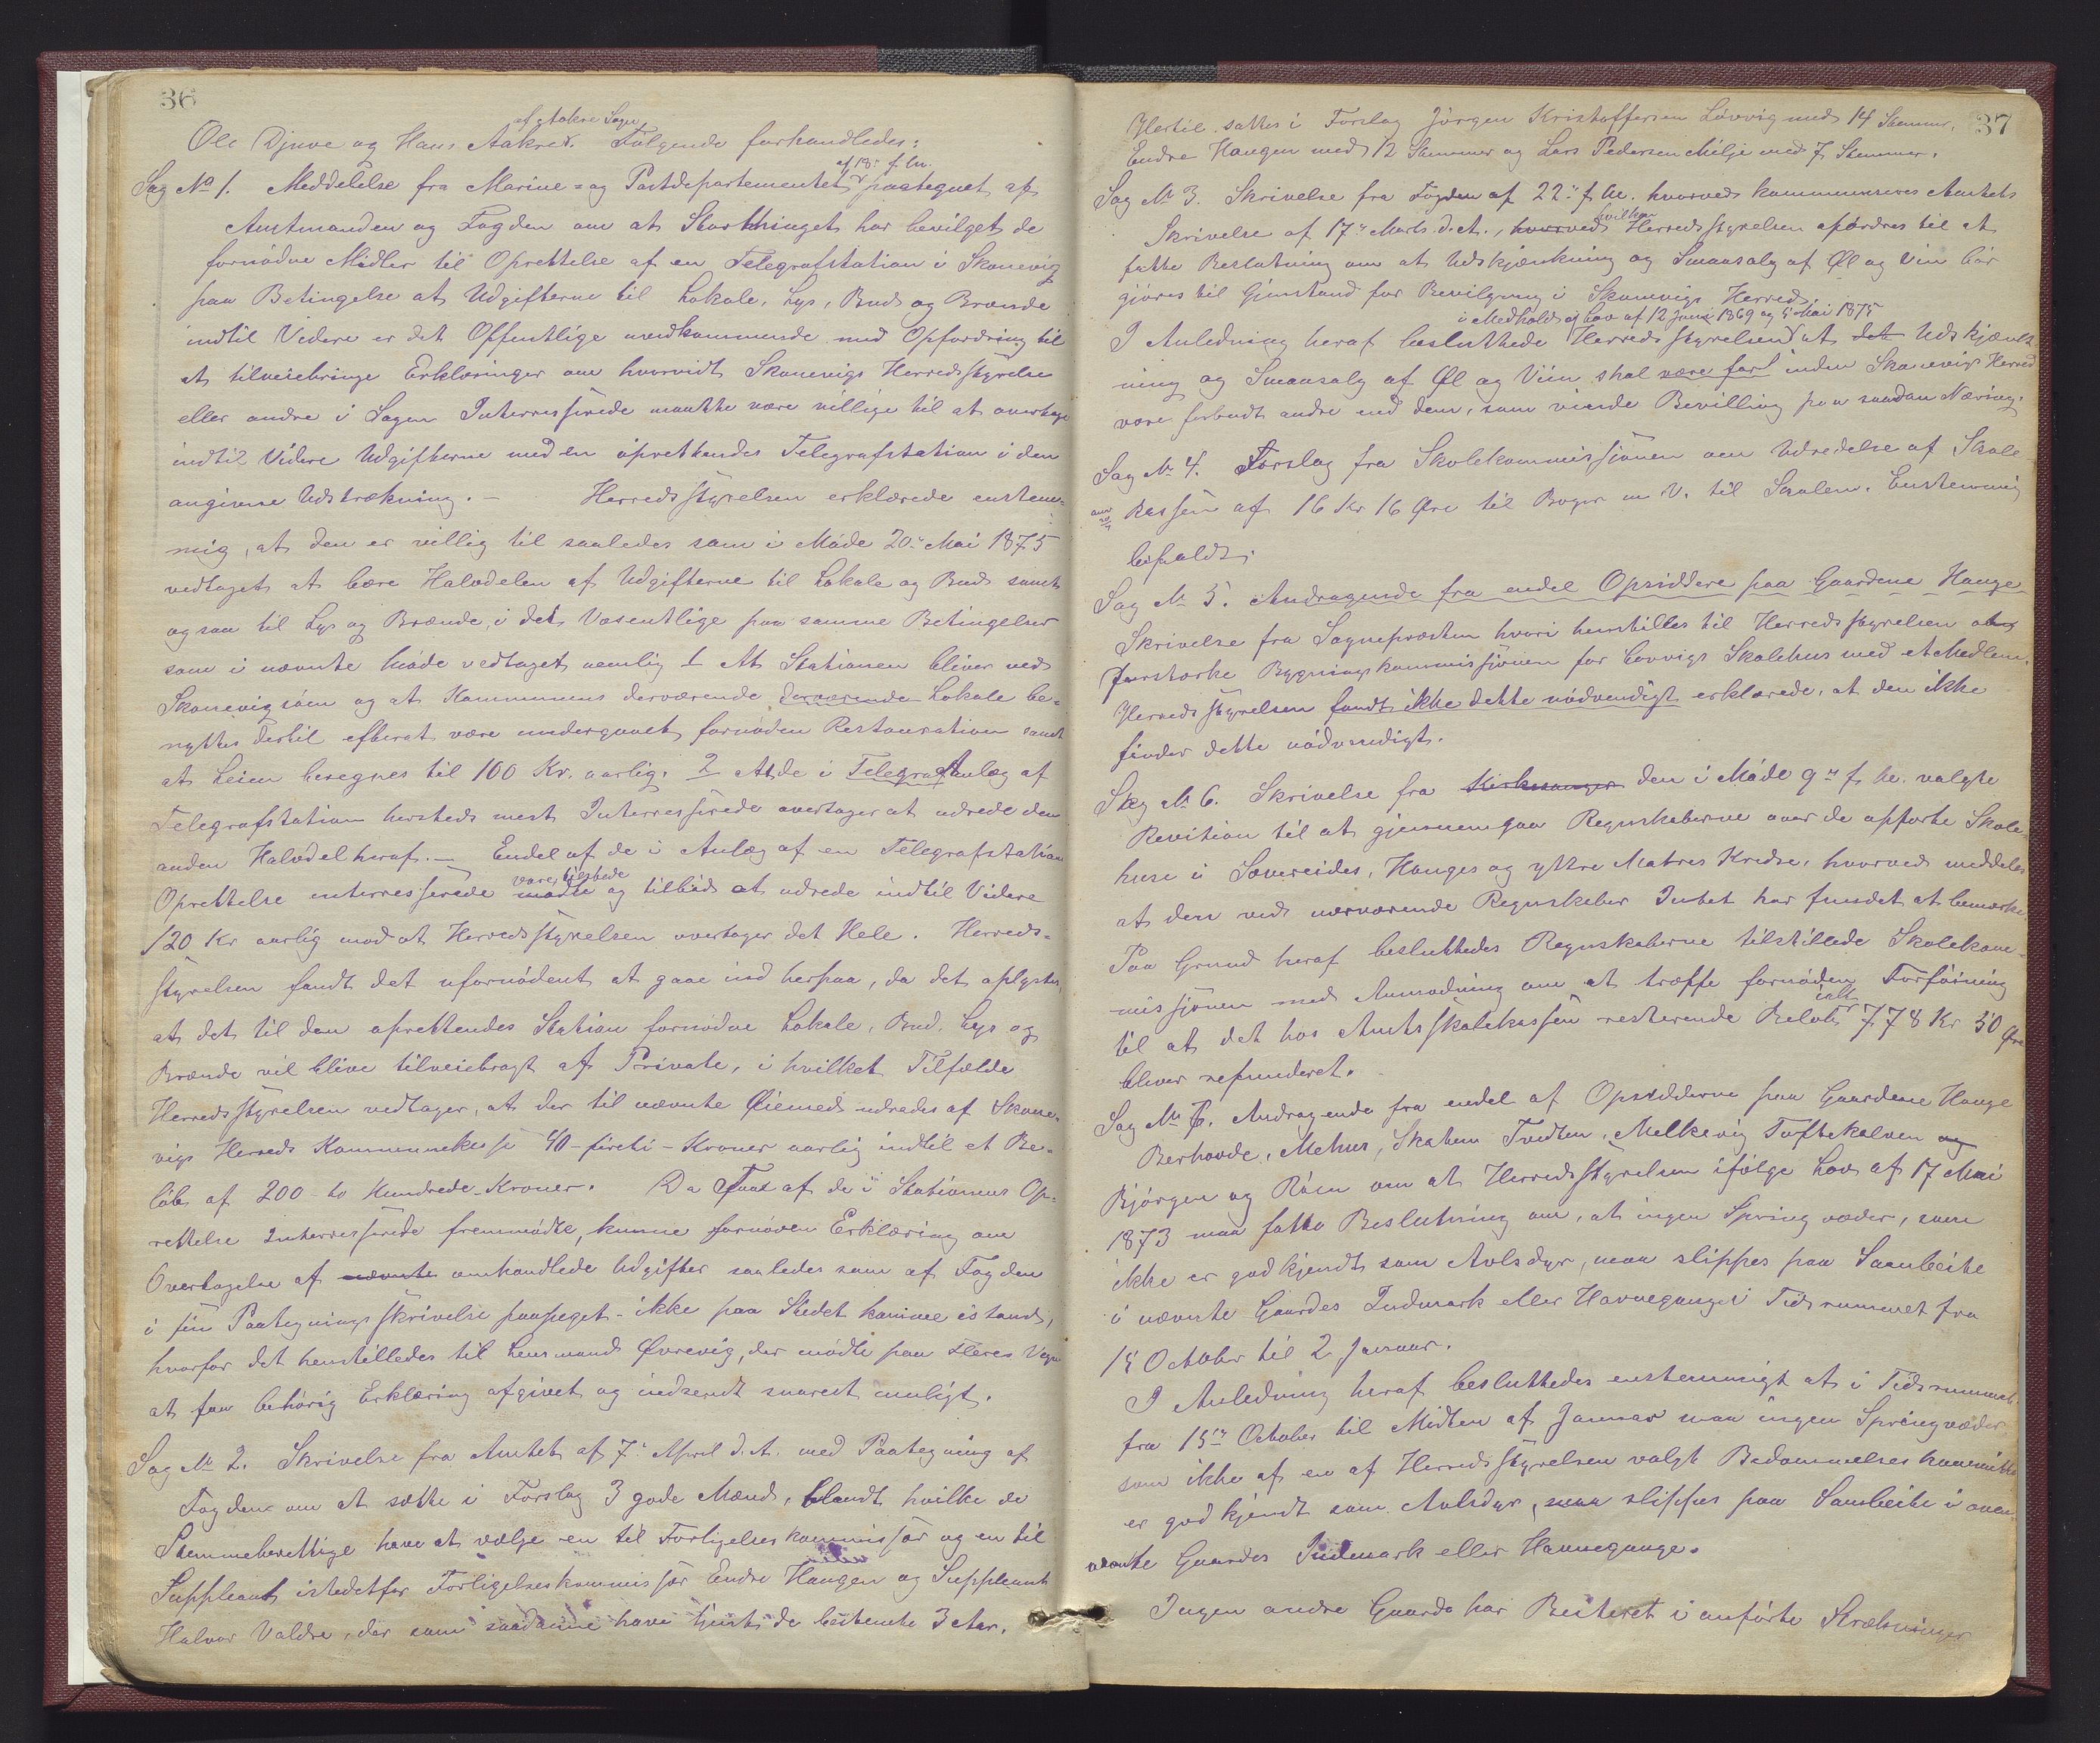 36
af gtokre Sager
Ole Djuve og Hans Aakre. Følgende forhandledes:
af 18de f. M.
Sag No 1. Meddelelse fra Marine- og Postdepartementet paategnet af
Amtmanden og Fogden om at Storthinget har bevilget de
fornødne Midler til Oprettelse af en Telegrafstation i Skonevig
paa Betingelse at Udgifterne til Lokale, Lys, Bud og Brænde
indtil Videre er det Offentlige uvedkommende med Opfordring til
at tilveiebringe Erklæringer om hvorvidt Skonevigs Herredsstyrelse
eller andre i Sagen Interresserede maatte være villige til at overtage
indtil Videre Udgifterne med en oprettendes Telegrafstation i den
angivne Udstrækning. – Herredsstyrelsen erklærede enstem-
mig, at den er villig til saaledes som i Møde 20de Mai 1875
vedtaget at bære Halvdelen af Udgifterne til Lokale og Bud samt
ogsaa til Lys og Brænde, i det Væsentlige paa samme Betingelser
som i nævnte Møde vedtaget nemlig 1 At Stationen bliver ved
Skonevigsøen og at Kommunens derværende derværende Lokale be-
nyttes dertil efterat være undergaaet fornøden Restauration samt
at Leien beregnes til 100 Kr. aarlig. 2 At de i Telegraf Anlæg af
Telegrafstation hersteds mest Interresserede overtager at udrede den
anden Halvdel heraf. – Endel af de i Anlæg af en Telegrafstation
vare tilstede
Oprettelse interresserede mødte og tilbød at udrede indtil Videre
120 Kr aarlig mod at Herredsstyrelsen overtager det Hele. Herreds-
styrelsen fandt det ufornødent at gaae ind herpaa, da det oplystes,
at det til den oprettendes Station fornødne Lokale, Bud, Lys og
Brænde vil blive tilveiebragt af Private, i hvilket Tilfælde
Herredsstyrelsen vedtager, at der til nævnte Øiemed udredes af Skone-
vigs Herreds Kommunekasse 40 - fireti - Kroner aarlig indtil et Be-
løb af 200 - to Hundrede - Kroner. Da Faae af de i Stationens Op-
rettelse Interresserede fremmødte, kunne fornøden Erklæring om
Overtagelse af nævnte omhandlede Udgifter saaledes som af Fogden
i sin Paategningsskrivelse paapeget - ikke paa Stedet komme istand,
hvorfor det henstilledes til Lensmand Øvrevig, der mødte paa Fleres Vegne
at faa behørig Erklæring afgivet og indsendt snarest muligt.
Sag No 2. Skrivelse fra Amtet af 7de April d. A. med Paategning af
Fogden om at sætte i Forslag 3 gode Mænd, blandt hvilke de
Stemmeberettige have at vælge en til Forligelseskommissær og en til
Suppleant istedetfor Forligelseskommissær Endre Haugen og Suppleant
Halvor Valdre, der som saadanne have tjent de bestemte 3 Aar.
37
Hertil sattes i Forslag Jørgen Kristoffersen Løvvig med 14 Stemmer,
Endre Haugen med 12 Stemmer og Lars Pedersen Milje med 7 Stemmer.
Sag No 3. Skrivelse fra Fogden af 22de f. M. hvorved kommuniceres Amtets
hvilken
Skrivelse af 17de Marts d. A., hvorved Herredsstyrelsen opfordres til at
fatte Beslutning om at Udskjænkning og Smaasalg af Øl og Vin bør
gjøres til Gjenstand for Bevilgning i Skonevigs Herred.
i Medhold af Lov af 12 Juni 1869 og 5 Mai 1875
I Anledning heraf besluttede Herredsstyrelsen at det Udskjænk-
ning og Smaasalg af Øl og Viin skal være forb inden Skonevigs Herred
være forbudt andre end dem, som vinde Bevilling paa saadan Næring.
Sag No 4. Forslag fra Skolekommissjonen om Udredelse af Skole
kassen af 16 Kr 16 Øre til Bøger m. V. til Skolen. Enstemmig
bifaldt.
Sag No 5. Andragende fra endel Opsiddere paa Gaardene Hauge
Skrivelse fra Sognepræsten hvori henstilles til Herredsstyrelsen at
forstærke Bygningskommissjonen for Løvvigs Skolehus med et Medlem.
Herredsstyrelsen fandt ikke dette nødvendigt erklærede, at den ikke
finder dette nødvendigt.
Sag No 6. Skrivelse fra Kirkesanger den i Møde 9de f. M. valgte
Revision til at gjennemgaa Regnskaberne over de opførte Skole-
huse i Sævereides, Hauges og ytre Matres Kredse, hvorved meddeles
at den ved nærværende Regnskaber Intet har fundet at bemærke
Paa Grund heraf besluttedes Regnskaberne tilstillede Skolekom-
missjonen med Anmodning om at træffe fornøden Forføining
ialt
til at det hos Amtsskolekassen resterende Beløb 778 Kr 50 Øre
bliver refunderet.
Sag No 7. Andragende fra endel af Opsidderne paa Gaardene Hauge
Berhovde, Mehus, Skaten Tvedten, Melkevig Toftekalven og
Bjørgen og Røen om at Herredsstyrelsen ifølge Lov af 17 Mai
1873 maa fatte Beslutning om, at ingen Springvæder, som
ikke er godkjendt som Avlsdyr, maa slippes paa Sambeite
i nævnte Gaardes Indmark eller Havnegange i Tidsrummet fra
15 October til 2 Januar.
I Anledning heraf besluttedes enstemmigt at i Tidsrummet
fra 15de October til Midten af Januar maa ingen Springvæder
som ikke af en af Herredsstyrelsen valgt Bedømmelseskommitte
er godkjendt som Avlsdyr, maa slippes paa Sambeite i oven
nævnte Gaardes Indmark eller Havnegange.
Ingen andre Gaarde har Beiteret i anførte Strækninger